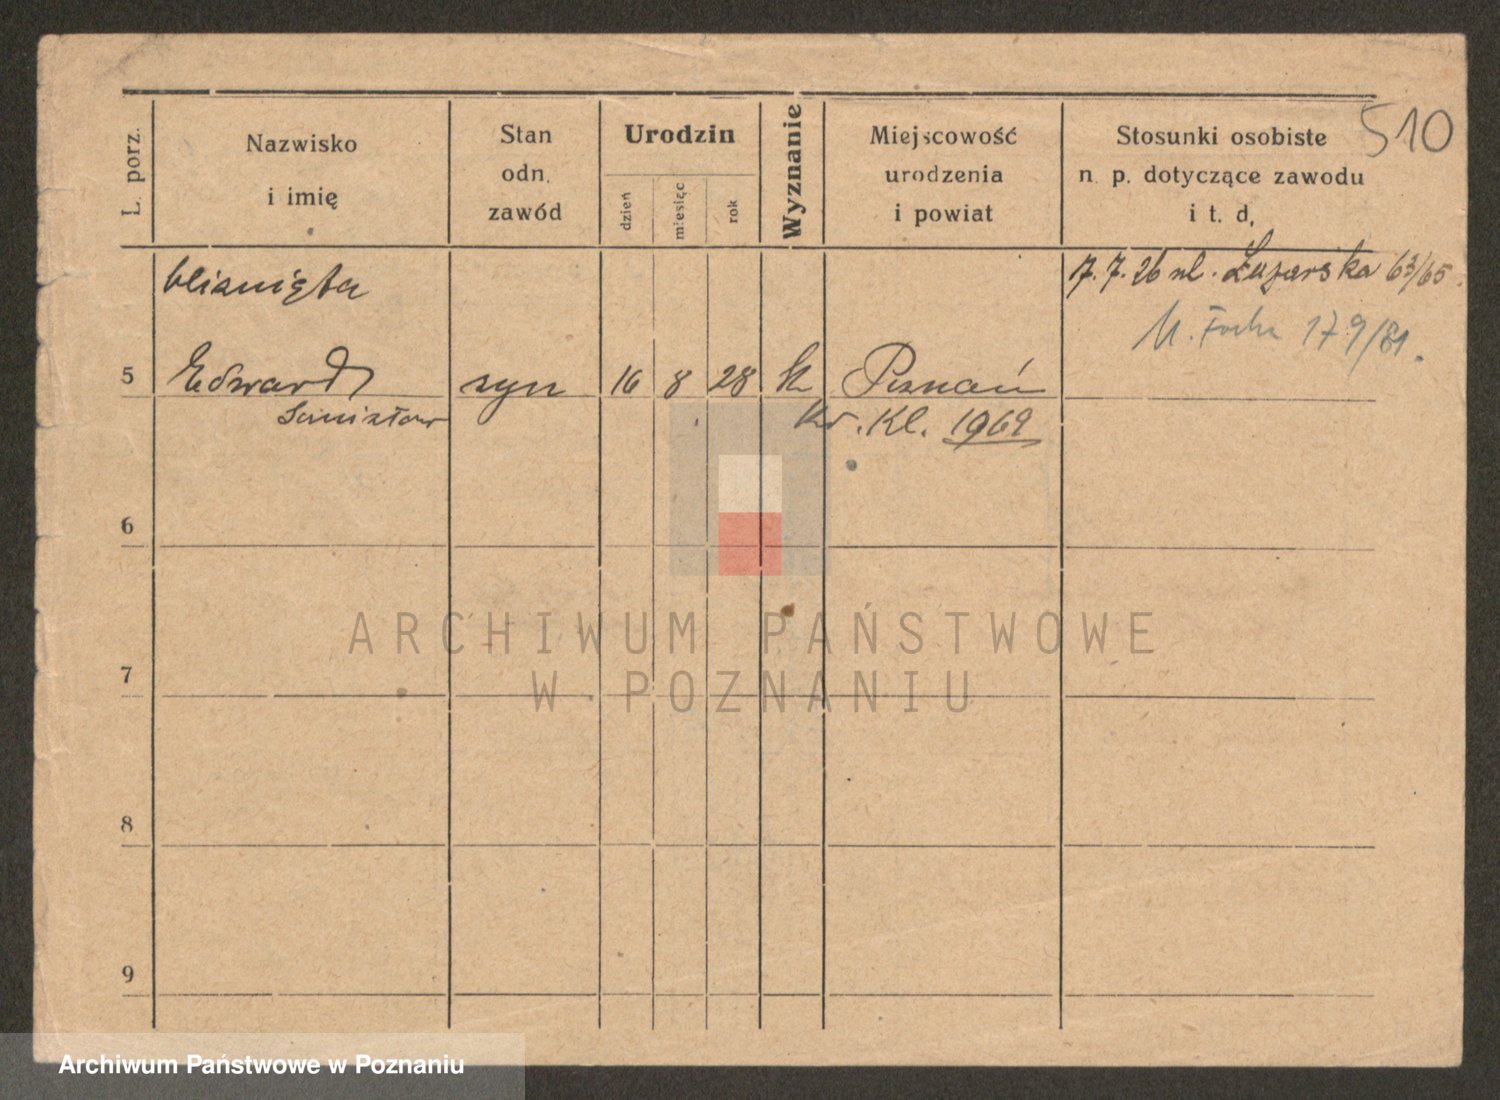 510
L. porz.
Nazwisko
i imię
Stan
odn.
zawód
Urodzin
dzień
miesięc
rok
Wyznanie
Miejscowość
urodzenia
i powiat
Stosunki osobiste
n. p. dotyczące zawodu
i t. d.
bliźnięta
17. 7. 26 ul. 63/65.
M. Focha 179/81.
5 Edward syn 16 8 28 k Poznań
Kl. 1969
6
7
8
9
ARCHIWUM PAŃSTWOWE
W POZNANIU
Archiwum Państwowe w Poznaniu